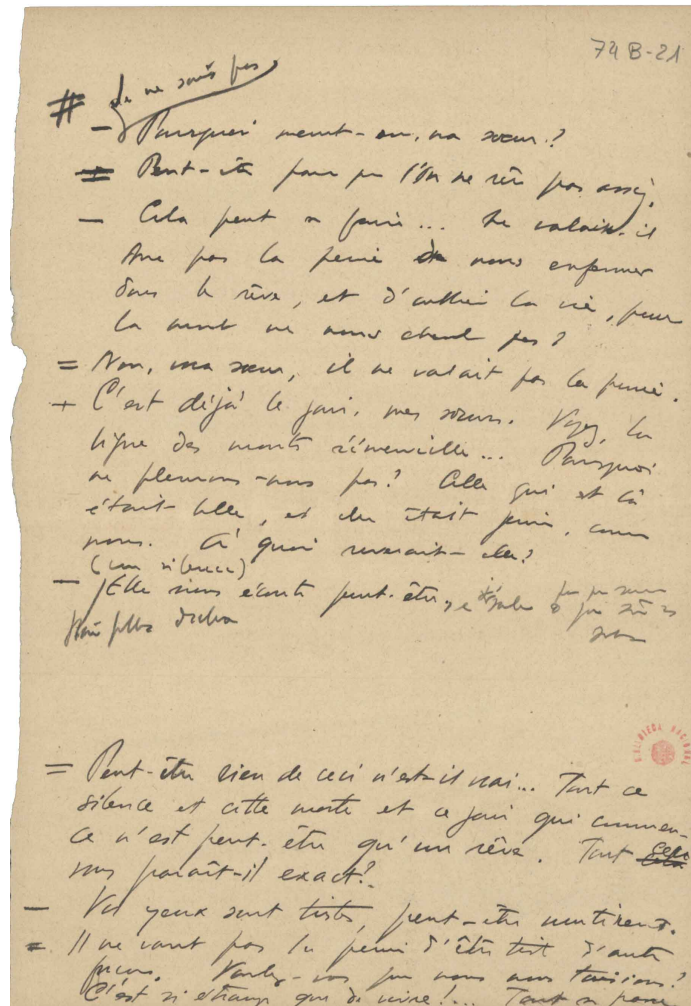 74 B-21
Je ne sais pas
— Pourquoi meurt-on, ma sœur?
= Peut-être parce que l'on ne rêve pas assez.
— Cela peut se faire... Ne valait-il
donc pas la peine de nous enfermer
dans le rêve, et d'oublier la vie, pour
la mort ne nous
= Non, ma sœur, il ne valait pas la peine.
+ C'est déjà le jour, mes sœurs. Voyez, la
ligne des monts s'émerveille... Pourquoi
ne pleurons-nous pas? Celle qui est là
était belle, et elle était jeune, comme
nous. A quoi rêvait-elle?
(un silence)
— Elle nous écoute peut-être,
= Peut-être rien de ceci n'est-il vrai... Tout ce
silence et cette morte et ce jour qui commen-
ce n'est peut-être qu'un rêve. Tout cela
vous paraît-il exact?
— Vos yeux sont tristes, peut-être
= Il ne vaut pas la peine d'être triste d'autre
façon. Voulez-vous que nous nous taisions?
C'est si étrange que de vivre!... Tout se passe